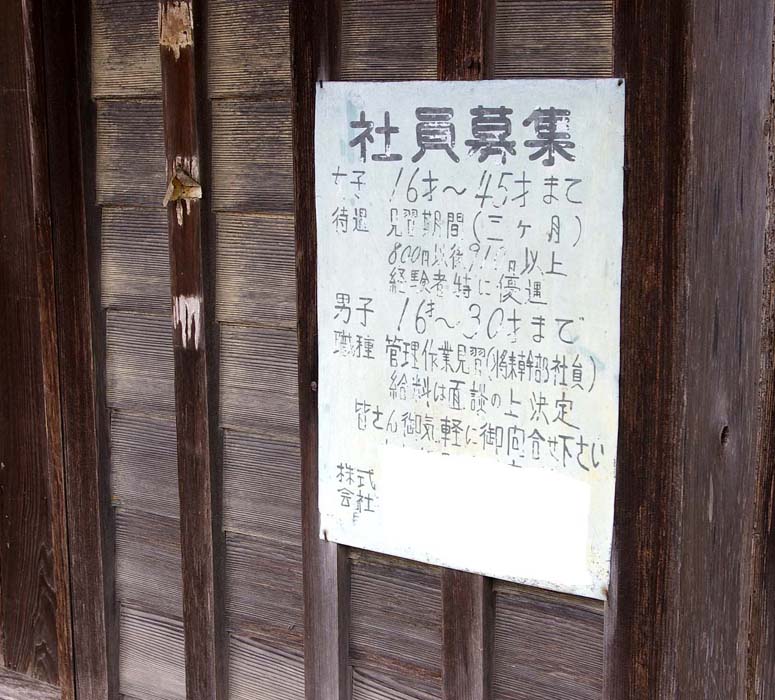 社員募集
女子 16才〜45才まで
待遇 見習期間(三ヶ月)
800円以後910円以上
経験者特に優遇
男子 16才〜30才まで
職種 管理作業見習(将来幹部社員)
給料は面談の上決定
皆さん御気軽に御向合せ下さい
株式会社